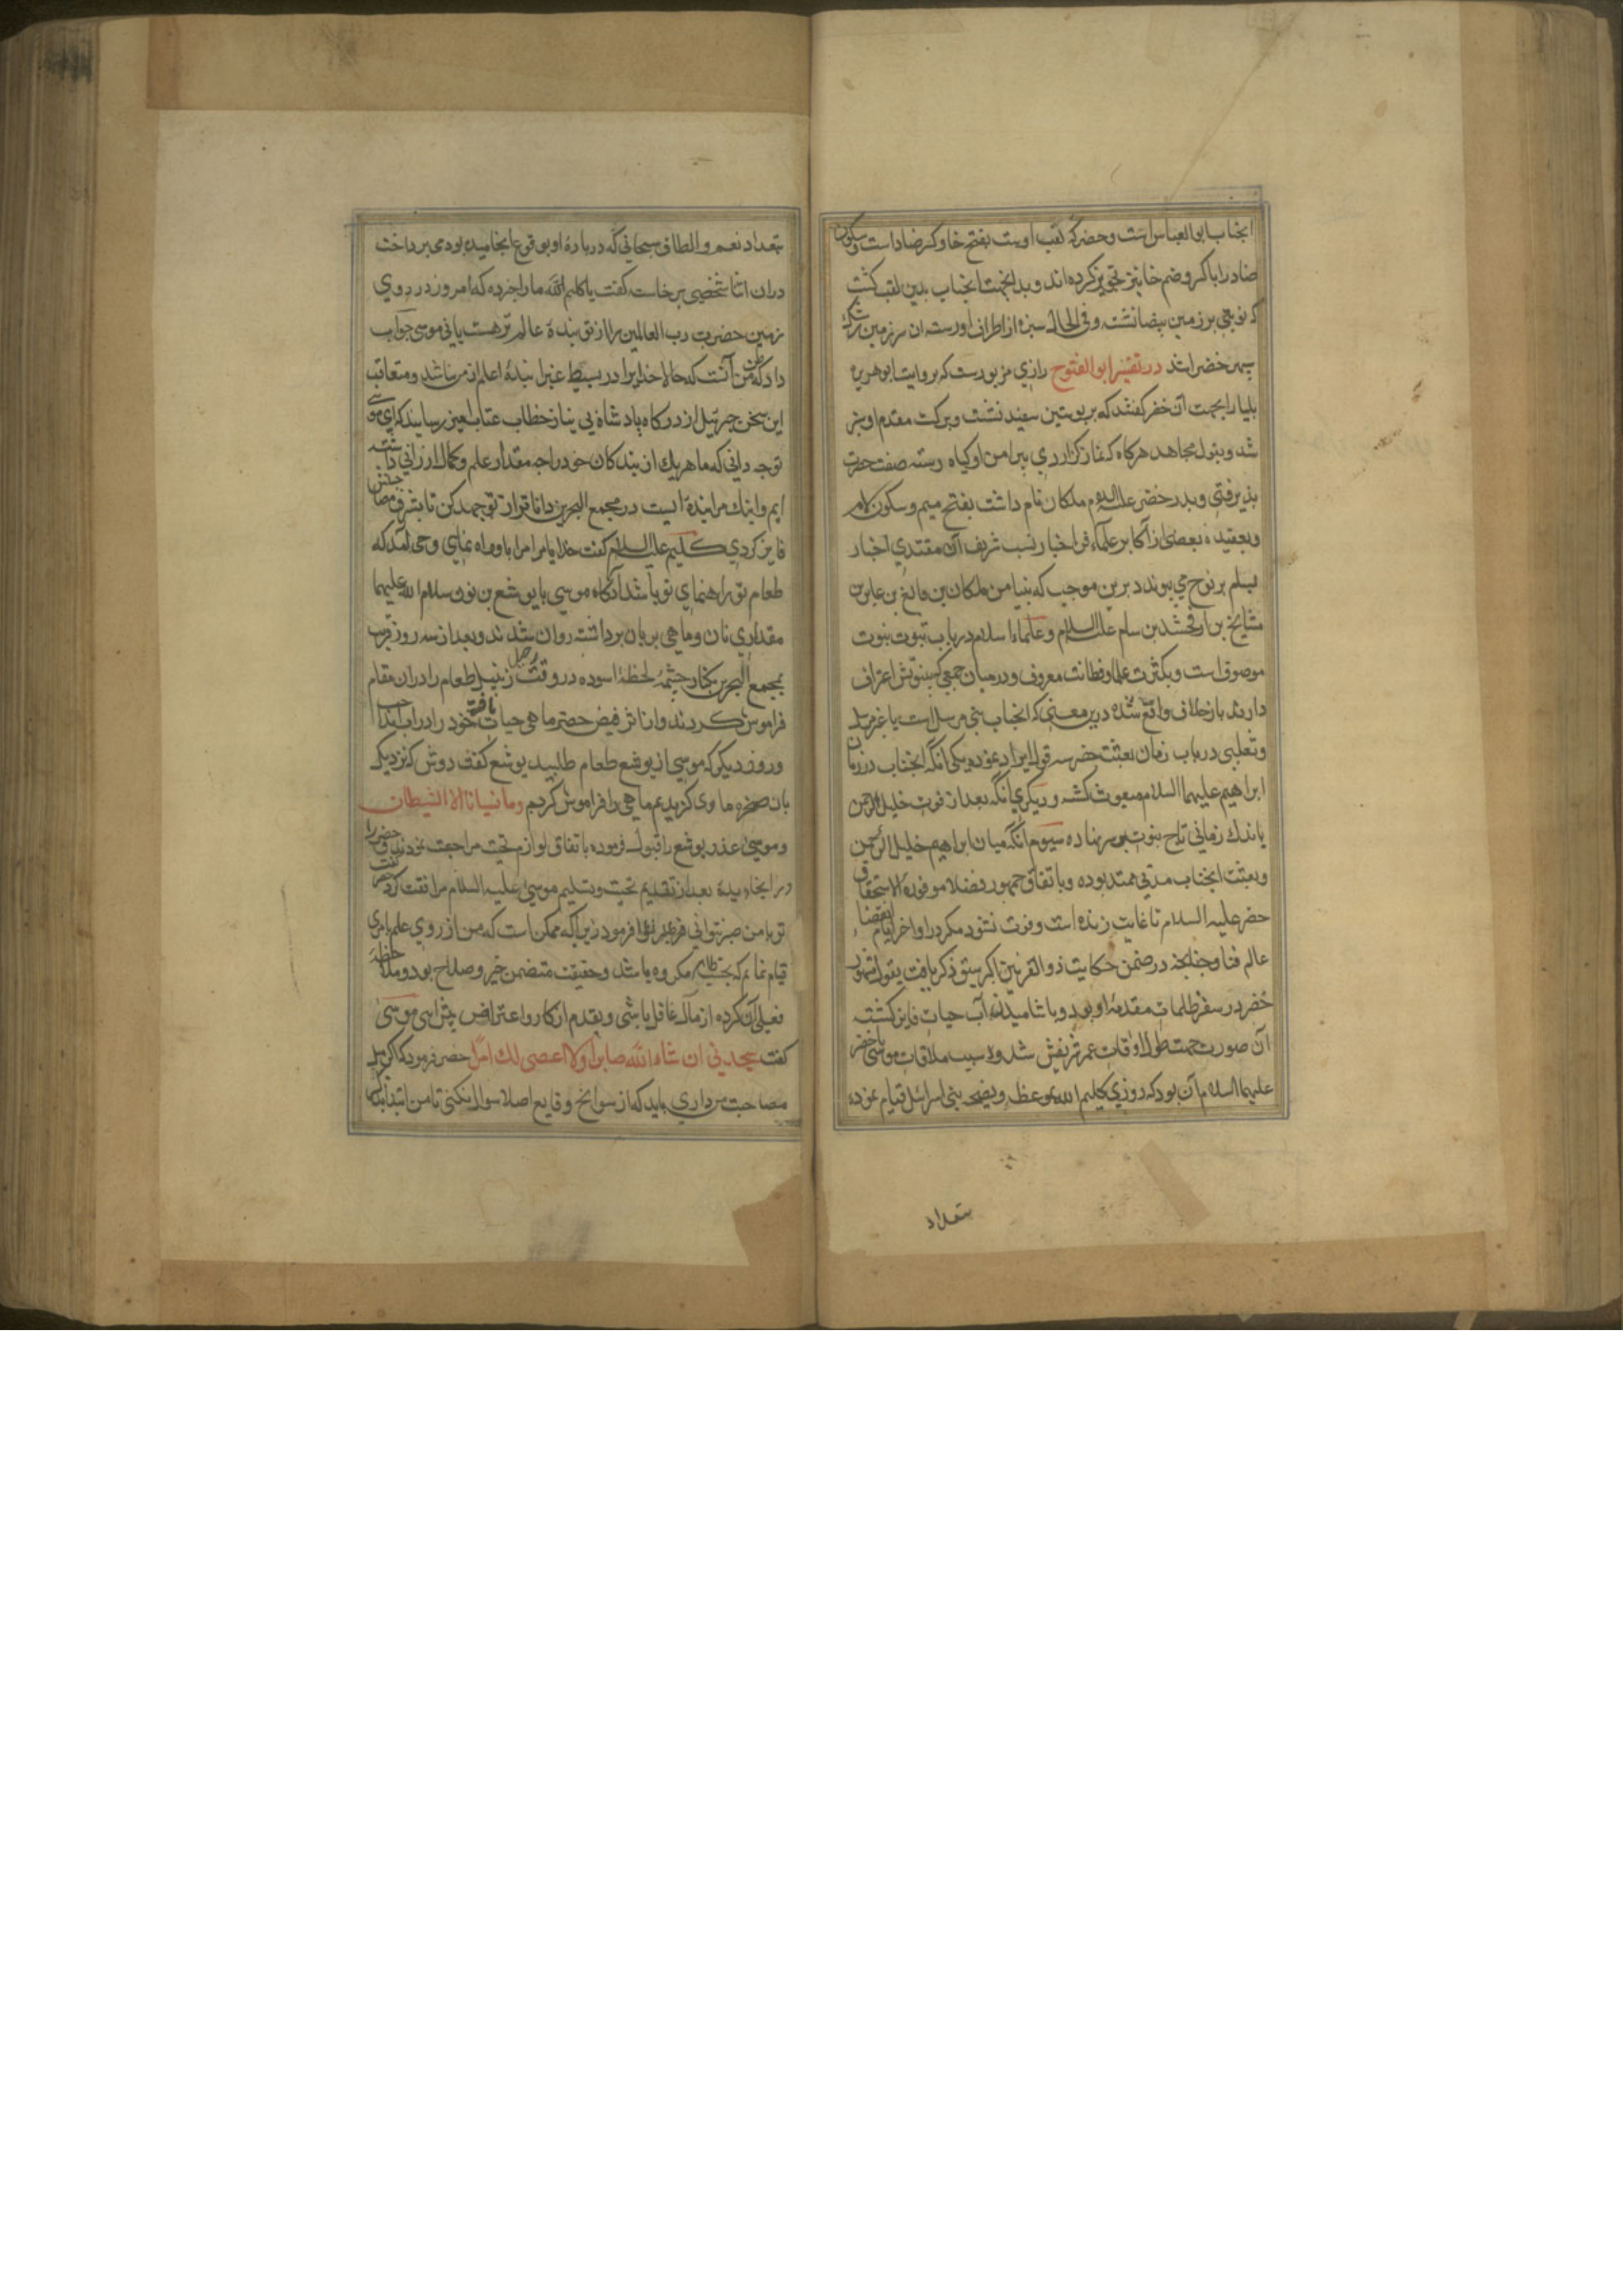 انجناب ابو العباس است وخضر که لقب اوست بفتح خا وکسر ضاد است وسکون
ضاد را با کسر وضم خا نیز تجویز کرده اند وبدانجهت انجناب بدین لقب کشت
که نوبتی بر زمین بیضا نشته وفی الحال سبزه از اطراف او رسته ان سرزمین
سپهر خضرا شد در تفسیر ابو الفتوح رازی مزبورست که بروایت ابو هریره
بلیا را بجهت آن خضر کفتند که بر پوستین سفید نشست وببرکت مقدم او سبز
شد وبقول مجاهد هرکاه که نماز کزاردی پیرامن او کیاه رسته صفت خضرت
پذیرفتی وپدر خضر علیه السلام ملکان نام داشت بفتح میم وسکون لام
وبعقیده بعضی از اکابر علماء فن اخبار نسب شریف آن مقتدی اخیار
بسام بن نوح می پیوندد برین موجب که بلیا من ملکان بن فالغ بن عابر بن
شالخ بن ارفخشد بن سام علیه السلام وعلماء اسلام در باب ثبوت نبوت
موصوف است وبکثرت علم وفطانت معروف ودرمیان جمعی که بنبوتش اعتراف
دارند باز خلاف واقع شده درین معنی که انجناب نبی مرسل است یا غیر مرسل
وثعلبی در باب زمان بعثت خضر سه قول ایراد نموده یکی انکه انجناب در زمان
ابراهیم علیهما السلام مبعوث کشته ودیکری انکه بعد از فوت خلیل الرحمن
باندك زمانی تاج نبوت بر سر نهاده سیوم انکه میان ابراهیم خلیل الرحمن
وبعثت انجناب مدتی ممتد بوده وباتفاق جمهور فضلا موفوره الاستحقاق
خضر علیه السلام تا غایت زنده است وفوت نشود مکر در اواخر ایام انقضاء
عالم فنا وچنانچه در ضمن حکایت ذو القرنین اکبر سبق ذکر یافت بقول مشهور
خضر در سفر ظلمات مقدمه او بود وباشامیدن آب حیات فایز کشته
آن صورت جهت طول اوقات عمر شریفش شد وسبب ملاقات موسی با خضر
علیهما السلام آن بود که روزی کلیم الله بموعظه ونصیحه بنی اسرائیل قیام نموده
تعداد
تعداد نعم والطاف سبحانی که درباره او بوقوع انجامیده بود می پرداخت
دران اثنا شخصی برخاست کفت یا کلیم الله ما را خبر ده که امروز در روی
زمین حضرت رب العالمین را از تو بنده عالم تر هست یا نی موسی جواب
داد که ظن من آنست که حالا خدایرا در بسیط غبرا بنده اعلم از من نباشد ومتعاقب
این سخن جبرئیل از درکاه پادشاه بی نیاز خطاب عتاب امیز رسانید که ای موسی
تو چه دانی که ما هریك از بندکان خود را چه مقدار علم وکمال ارزانی داشته
ایم واینك مرا بنده ایست در مجمع البحرین داناتر از تو جهد کن تا بشرف مصاحبتش
فایز کردی کلیم علیه السلام کفت خدایا مرا باو راه نمای وحی آمد که
طعام تو راهنمای تو باشد آنکاه موسی با یوشع بن نون سلام الله علیهما
مقداری نان وماهی بریان برداشته روان شدند وبعد از سه روز قریب
بمجمع البحرین بکنار چشمهٔ لحظهٔ اسوده در وقت رحیل زنبیل طعام را دران مقام
فراموش کردند واز اثر فیض خضر ماهی حیات یافته خود را در اب انداخت
وروز دیکر که موسی از یوشع طعام طلبید یوشع کفت دوش که نزدیك
بان صخره ماوی کزیدیم ماهی را فراموش کردیم وما انسانیه الا الشیطان
وموسی عذر یوشع را قبول فرموده باتفاق لوازم تحیت مراجعت نمودند وخضر را
در انجا دیده بعد از تقدیم تحیت وتسلیم موسی علیه السلام مرافقت کرد خضر کفت
تو با من صبر نتوانی فرمود زیرا که ممکن است که من از روی علم بامری
قیام نمایم که بحسب ظاهر مکروه باشد وحقیقت متضمن خیر وصلاح بود وملاحظه
فعلی آن کرده از مال غافل باشی وبقدم انکار واعتراض پیش ایی موسی
کفت ستجدنی ان شاء الله صابرا ولا اعصی لك امرا خضر فرمود که اکر میل
مصاحبت من داری باید که از سوانح وقایع اصلا سوال نکنی تا من ابتدا بکشف